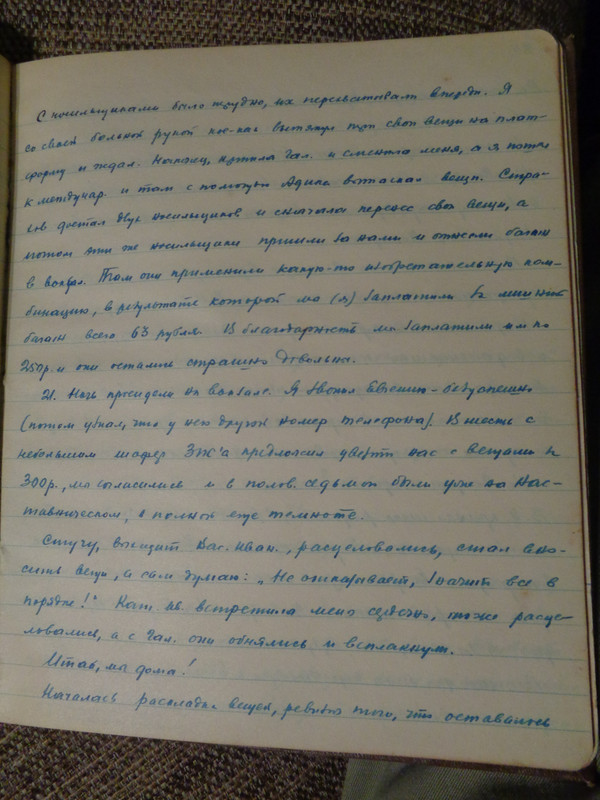 С носильщиками было трудно, их перехватывали впереди. Я
со своей больной рукой кое-как вытянул свои вещи на плат-
форму и ждал. Наконец, пришла Гал. и сменила меня, а я пошел
к междунар. и там с помощью Адика вытаскал вещи. Стра-
ков достал двух носильщиков и сначала перенес свои вещи, а
потом эти же носильщики пришли за нами и отнесли багаж
в вокзал. Там они применили какую-то изобретательную ком-
бинацию, в результате которой мы (я) заплатили за лишний
багаж всего 63 рубля. В благодарность мы заплатили им по
250 р. и они остались страшно довольны.
21. Ночь просидели на вокзале. Я звонил Евгению - безуспешно
(потом узнал, что у него другой номер телефона). В шесть с
небольшим шофер ЗЖ'а предложил увезти нас с вещами за
300 р., мы согласились и в полов. седьмого были уже на Нас-
тавническом, в полной еще темноте.
Стучу, выходит Вас. Иван., расцеловались, стал вно-
сить вещи, а сам думаю: „Не отпирывает, значит все в
порядке!" Кат. Ив. встретила меня сердечно, тоже расце-
ловались, а с Гал. они обнялись и всплакнули.
Итак, мы дома!
Началась раскладка вещей, ревизия того, что оставалось